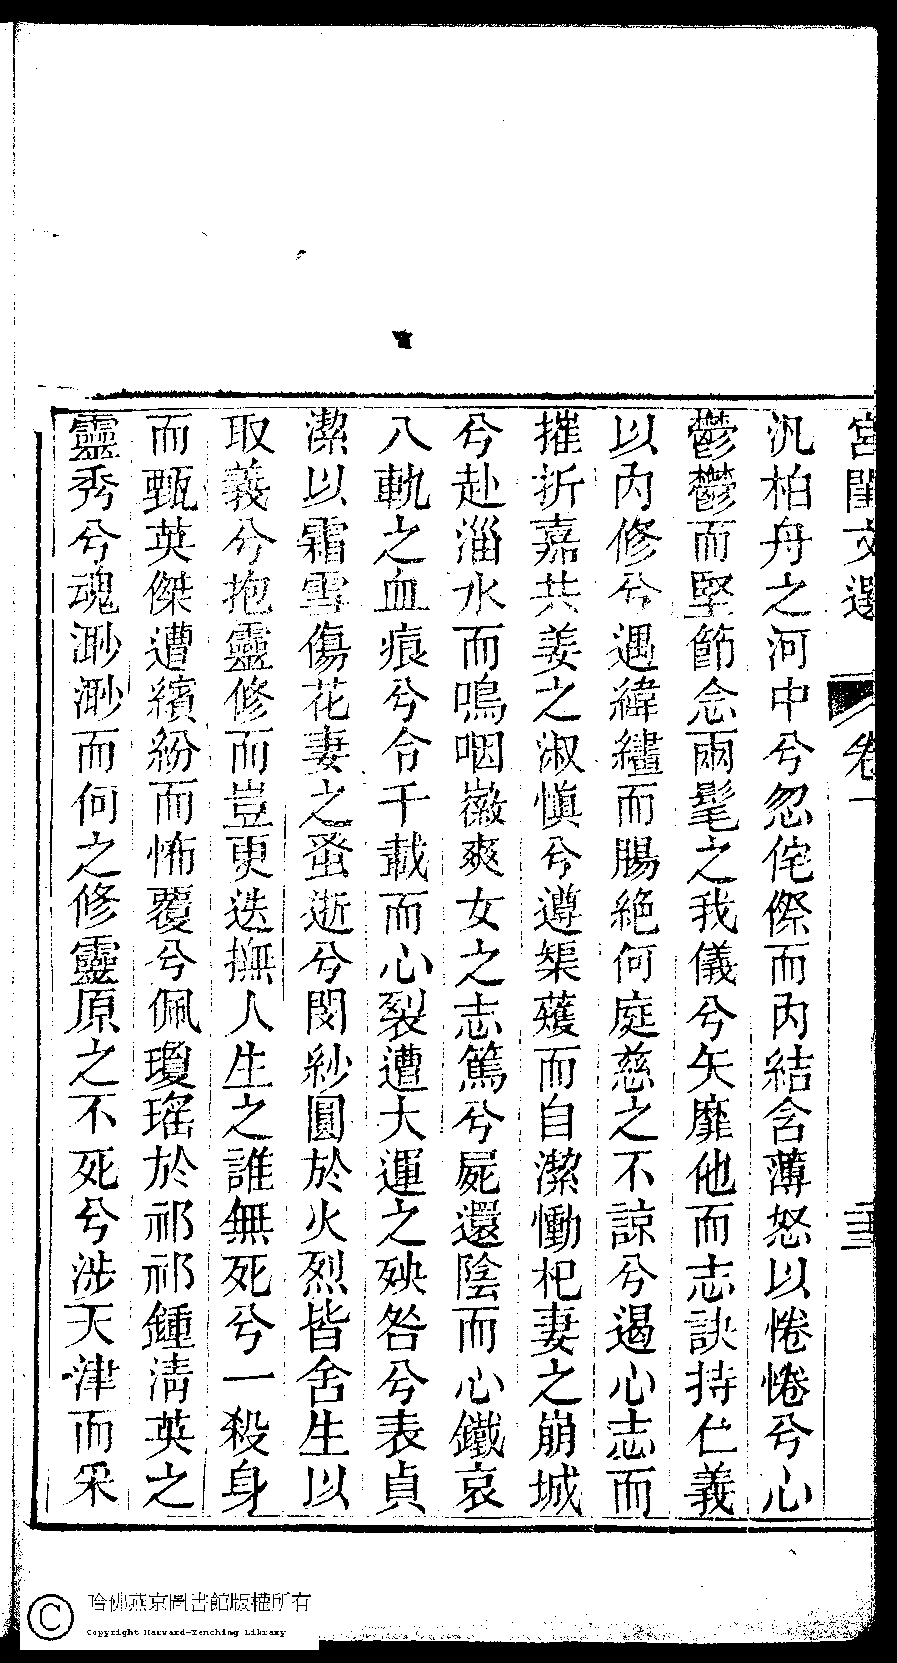 宮閨文選 卷一 三
汎柏舟之河中兮忽侘傺而内結含薄怒以惓惓兮心
鬱鬱而堅節念兩髦之我儀兮矢靡他而志訣持仁義
以内修兮遇緯繣而腸絶何庭慈之不諒兮遏心志而
摧折嘉共姜之淑慎兮遵榘矱而自潔慟杞妻之崩城
兮赴淄水而嗚咽徽爽女之志篤兮屍還陰而心鐵哀
八軌之血痕兮令千載而心裂遭大運之殃咎兮表貞
潔以霜雪傷花妻之蚤逝兮閔紗圓於火烈皆舍生以
取義兮抱靈修而豈更迭撫人生之誰無死兮一殺身
而甄英傑遭繽紛而怖覆兮佩瓊瑤於祁祁鍾淸英之
靈秀兮魂渺渺而何之修靈原之不死兮涉天津而采
哈佛燕京圖書館版權所有
Copyright Harvard-Yenching Library